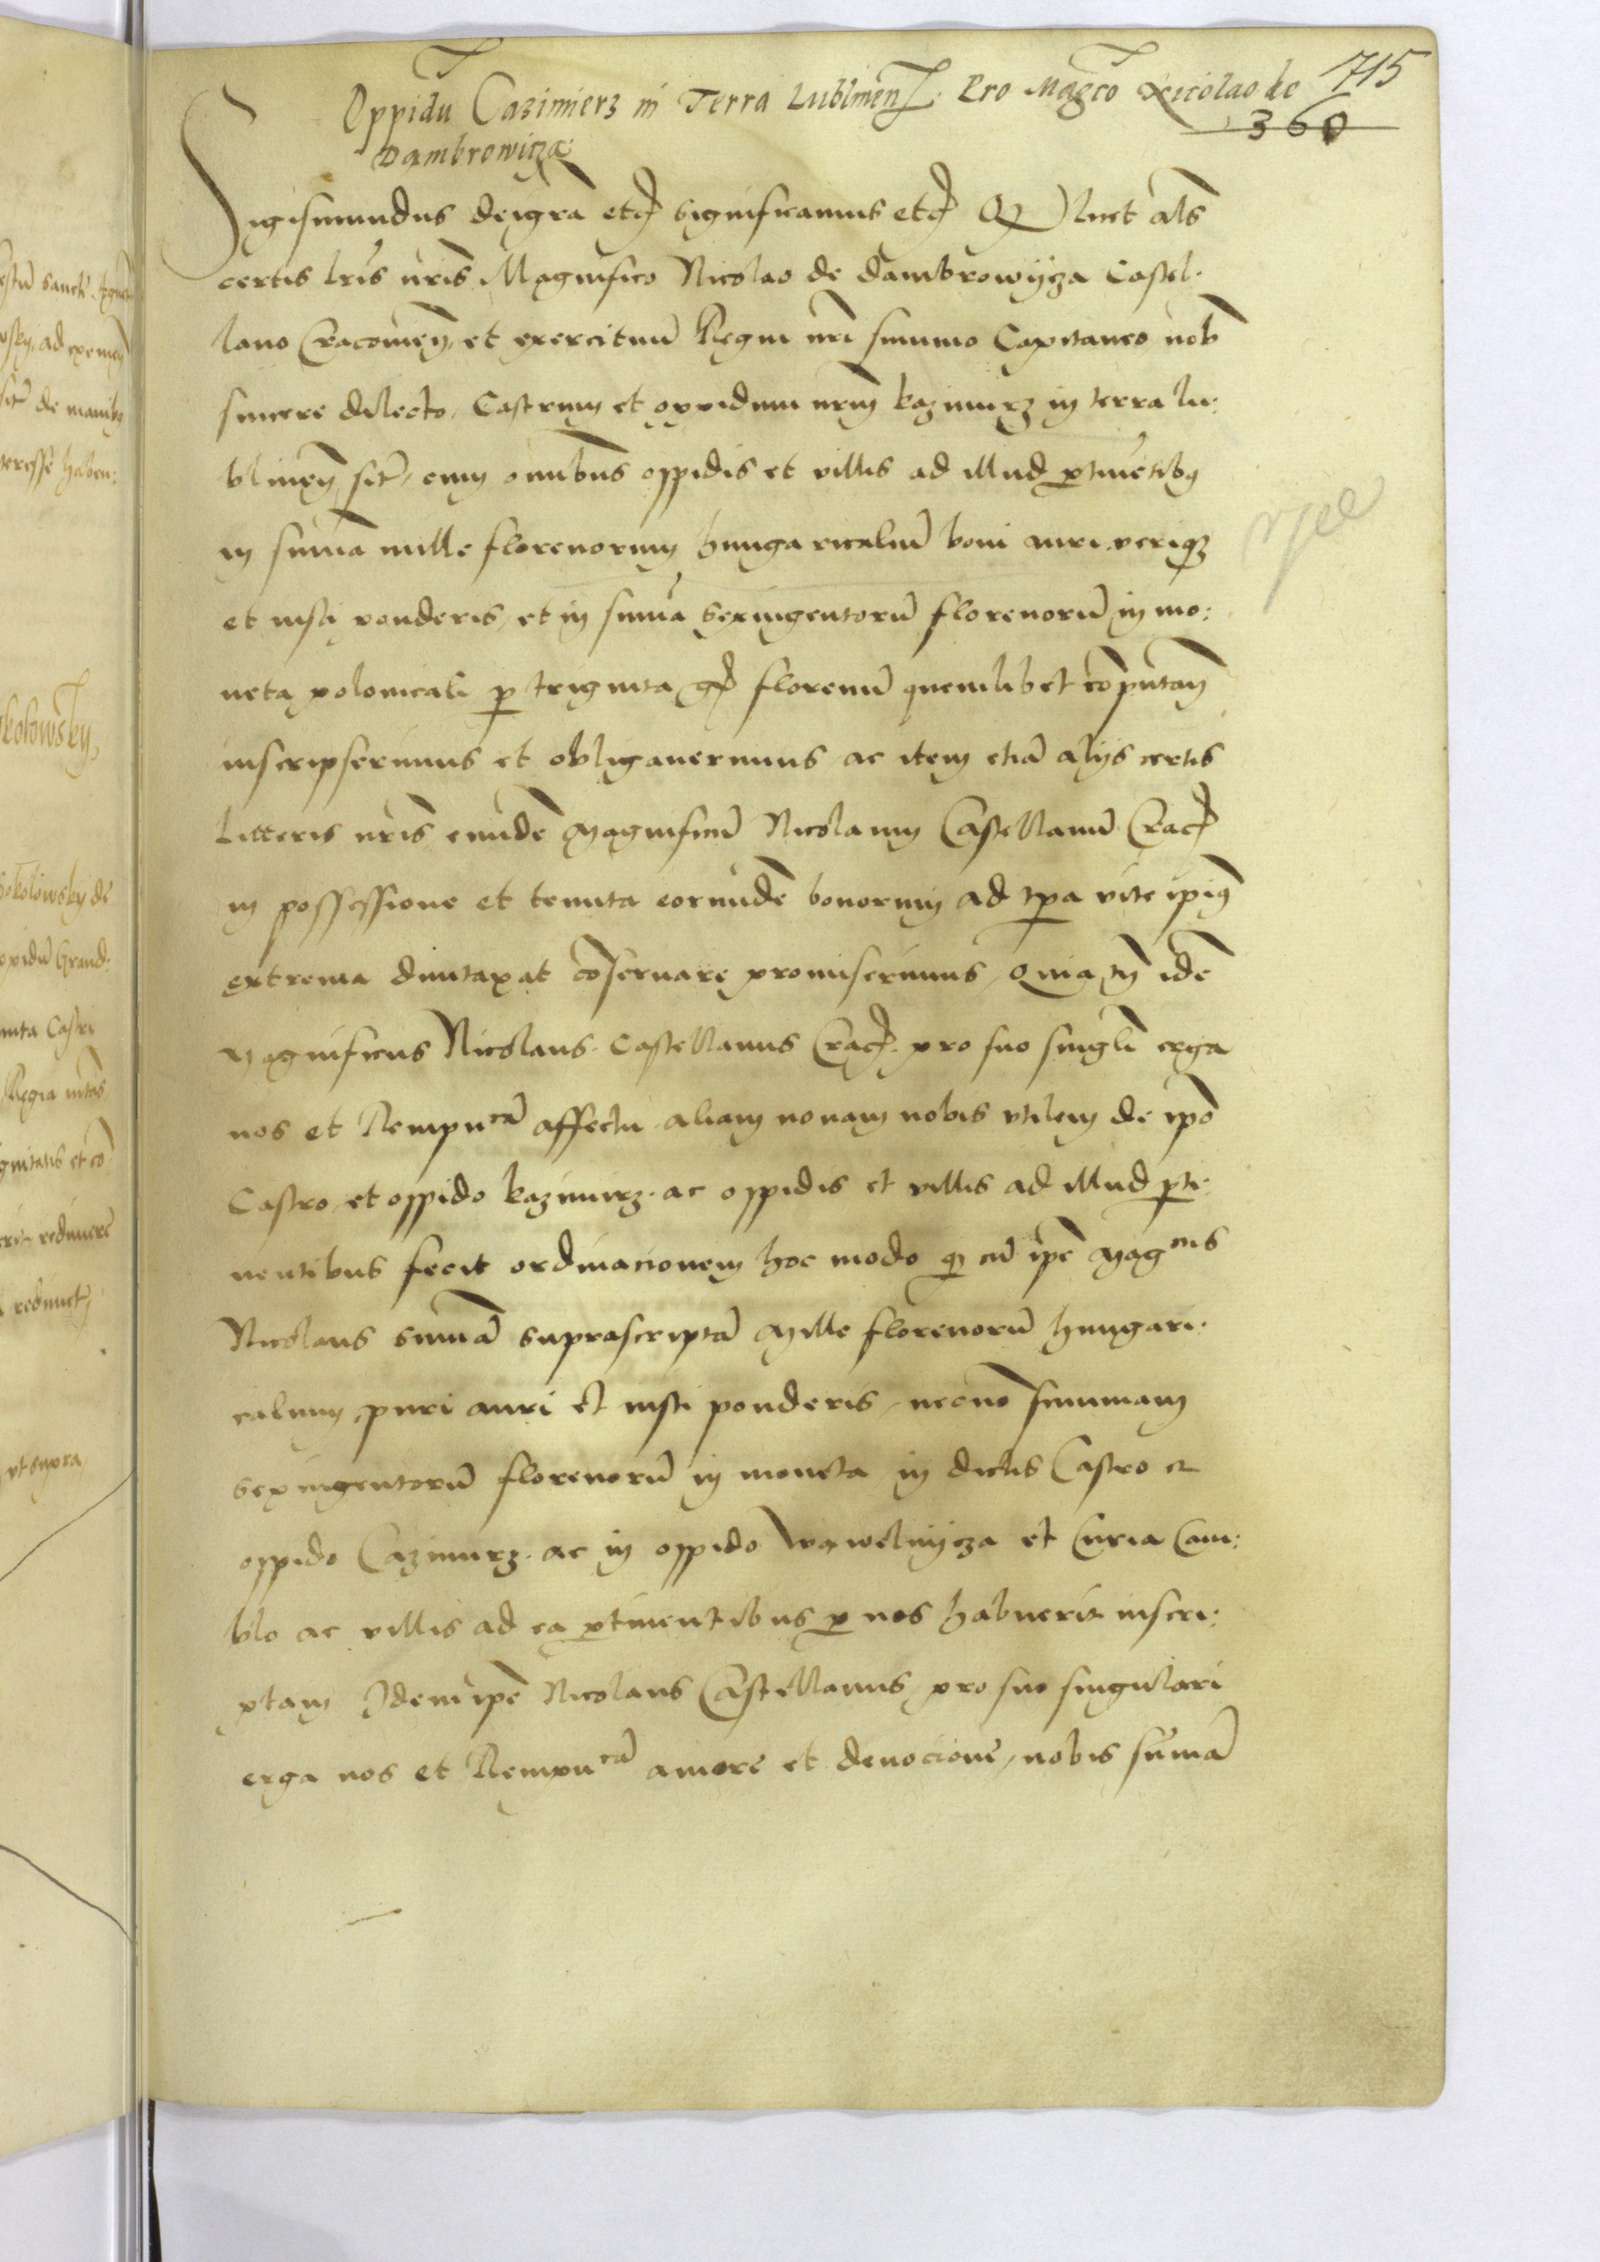 715
Oppidu Cazimierz in Terra Lublinen. Pro Magco Nicolao de
360
Dambrowitza
Sigismundus dei gra etc significamus etc Q licet als
certis lris nris Magnifico Nicolao de Dambrowycza Castel-
lano Cracovien, et exercituu Regni nri summo Capitaneo nob
sincere dilecto, Castrum et oppidum nrm kazimirz in terra lu:
blinen sit, cum omnibus oppidis et villis ad illud ptinetibq
in suma mille florenorum hungaricaliu boni auri veriqz
et iusti ponderis, et in suma sexingentoru florenoru in mo:
neta polonicali p triginta gr florenu quemlibet coputan
inscripserimus et obligaverimus ac item etia alijs certis
litteris nris eunde Magnificu Nicolaum Castellanu Crac
in possessione et tenuta eorunde bonorum ad tpa vite ipiq
extrema duntaxat coservare promiserimus, Quia tn ide
Magnificus Nicolaus Castellanus Crac. pro suo singli erga
nos et Rempuca affectu aliam novam nobis utilem de ipo
Castro et oppido kazimirz. ac oppidis et villis ad illud pti:
nentibus fecit ordinacionem hoc modo q cu ipe Magcus
Nicolaus suma suprascripta Mille florenoru hungari:
calium puri auri et iusti ponderis, necno summam
sexingentoru florenoru in moneta in dictis Castro et
oppido Cazimirz. ac in oppido Wawelnycza et Curia Cam:
blo ac villis ad ea ptinentibus p nos habuerit inscri:
ptam Idem ipe Nicolaus Castellanus, pro suo singulari
erga nos et Rempuca amore et devocione, nobis suma